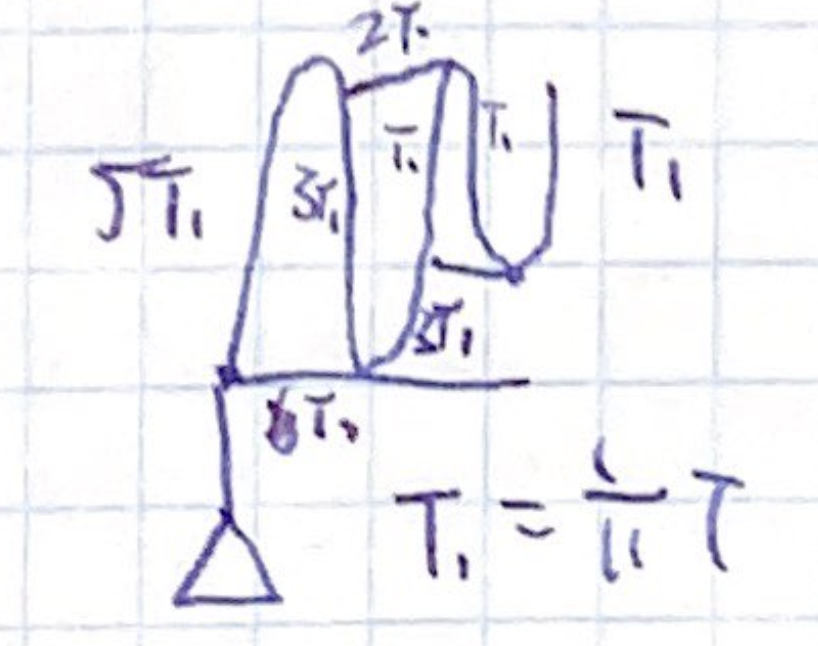 2T₁
5T₁
3T₁
T₁
T₁
T₁
3T₁
6T₁
T₁ = 1/11 T